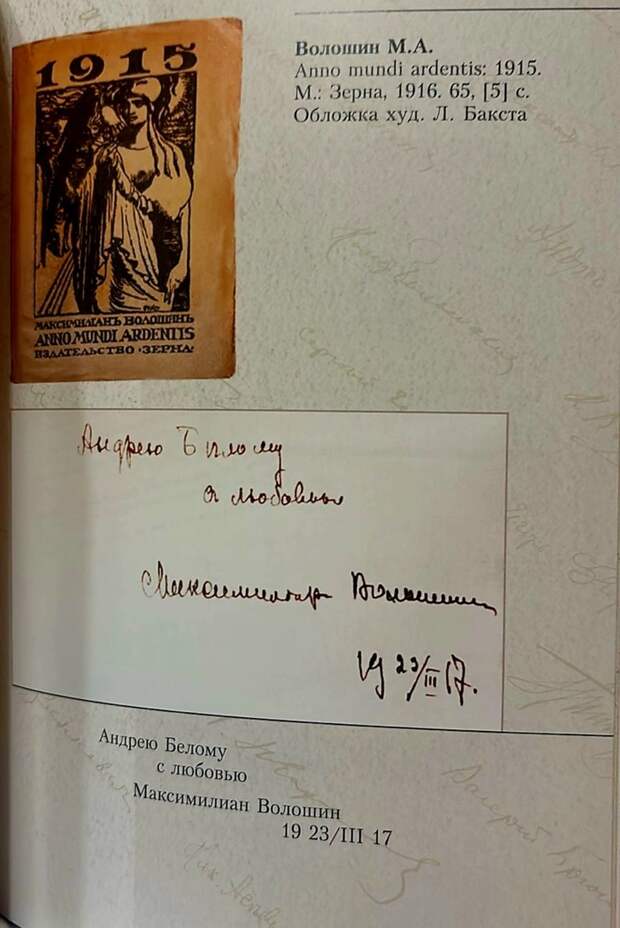 1915
МАКСИМИЛІАНЪ ВОЛОШИНЪ
ANNO MUNDI ARDENTIS
ИЗДАТЕЛЬСТВО «ЗЕРНА»
Волошин М.А.
Anno mundi ardentis: 1915.
М.: Зерна, 1916. 65, [5] с.
Обложка худ. Л. Бакста
Андрею Бѣлому
с любовью
Максимилиан Волошин
19 23/III 17.
Андрею Белому
с любовью
Максимилиан Волошин
19 23/III 17
Валерий